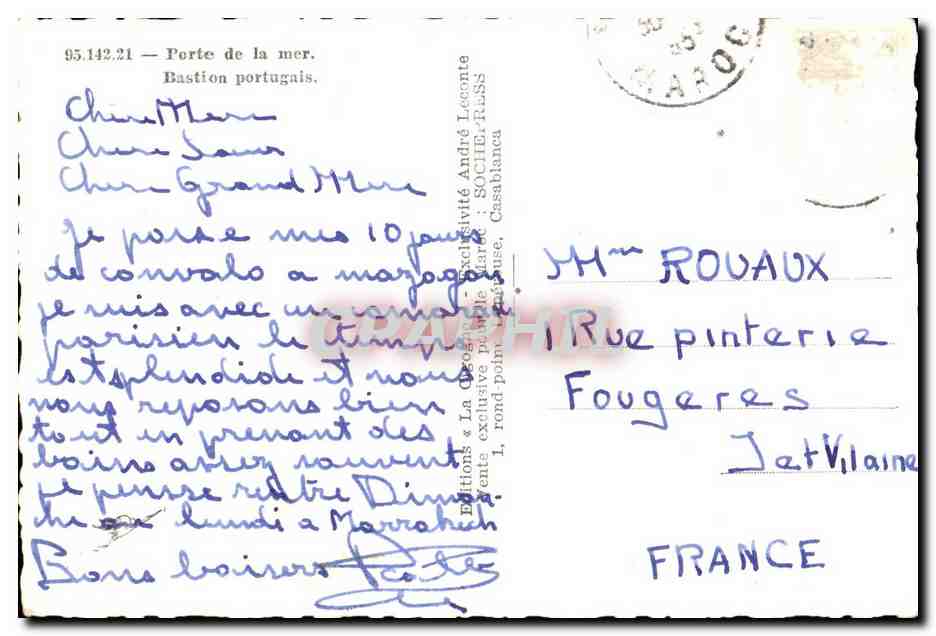 95.142.21 — Porte de la mer.
Bastion portugais.
Chere Mere
Chere Soeur
Chere Grand Mere
Je passe mes 10 jours
de convalo a mazagan
je suis avec un camarade
parisien le temps
est splendide et nous
nous reposons bien
tout en prenant des
bains assez souvent
je pense rentre Diman-
che ou lundi a Marrakech
Bons baisers
Editions « La Cigogne » - Exclusivité André Leconte
Vente exclusive pour le Maroc : SOCHEPRESS
1, rond-point Casablanca
MAROC
CPAPHIL
Mme ROUAUX
1 Rue pinterie
Fougeres
Iet Vilaine
FRANCE